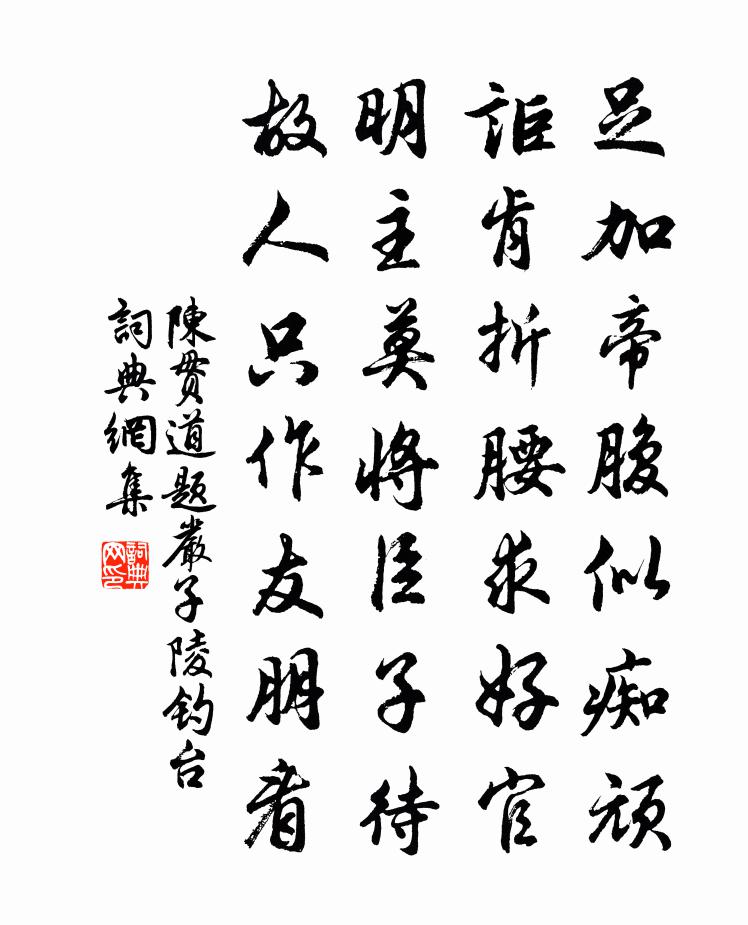 足加帝腹似痴頑
詎肯折腰求好官
明主莫將臣子待
故人只作友朋看
陳貫道題嚴子陵釣台
詞典網集
詞典
网印